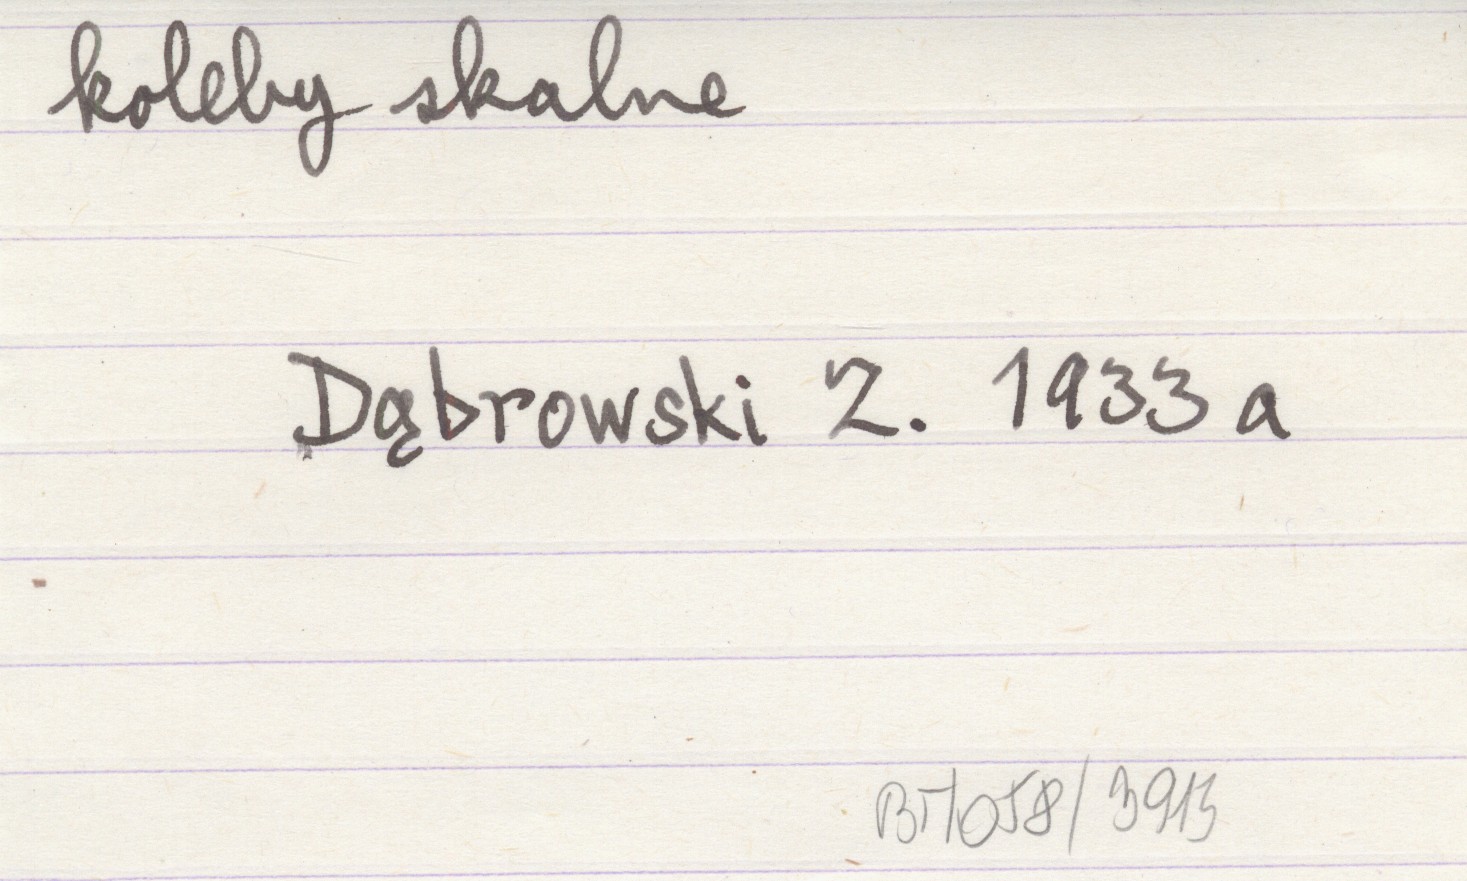 koleby skalne
Dąbrowski Z. 1933 a
BT/058/3913